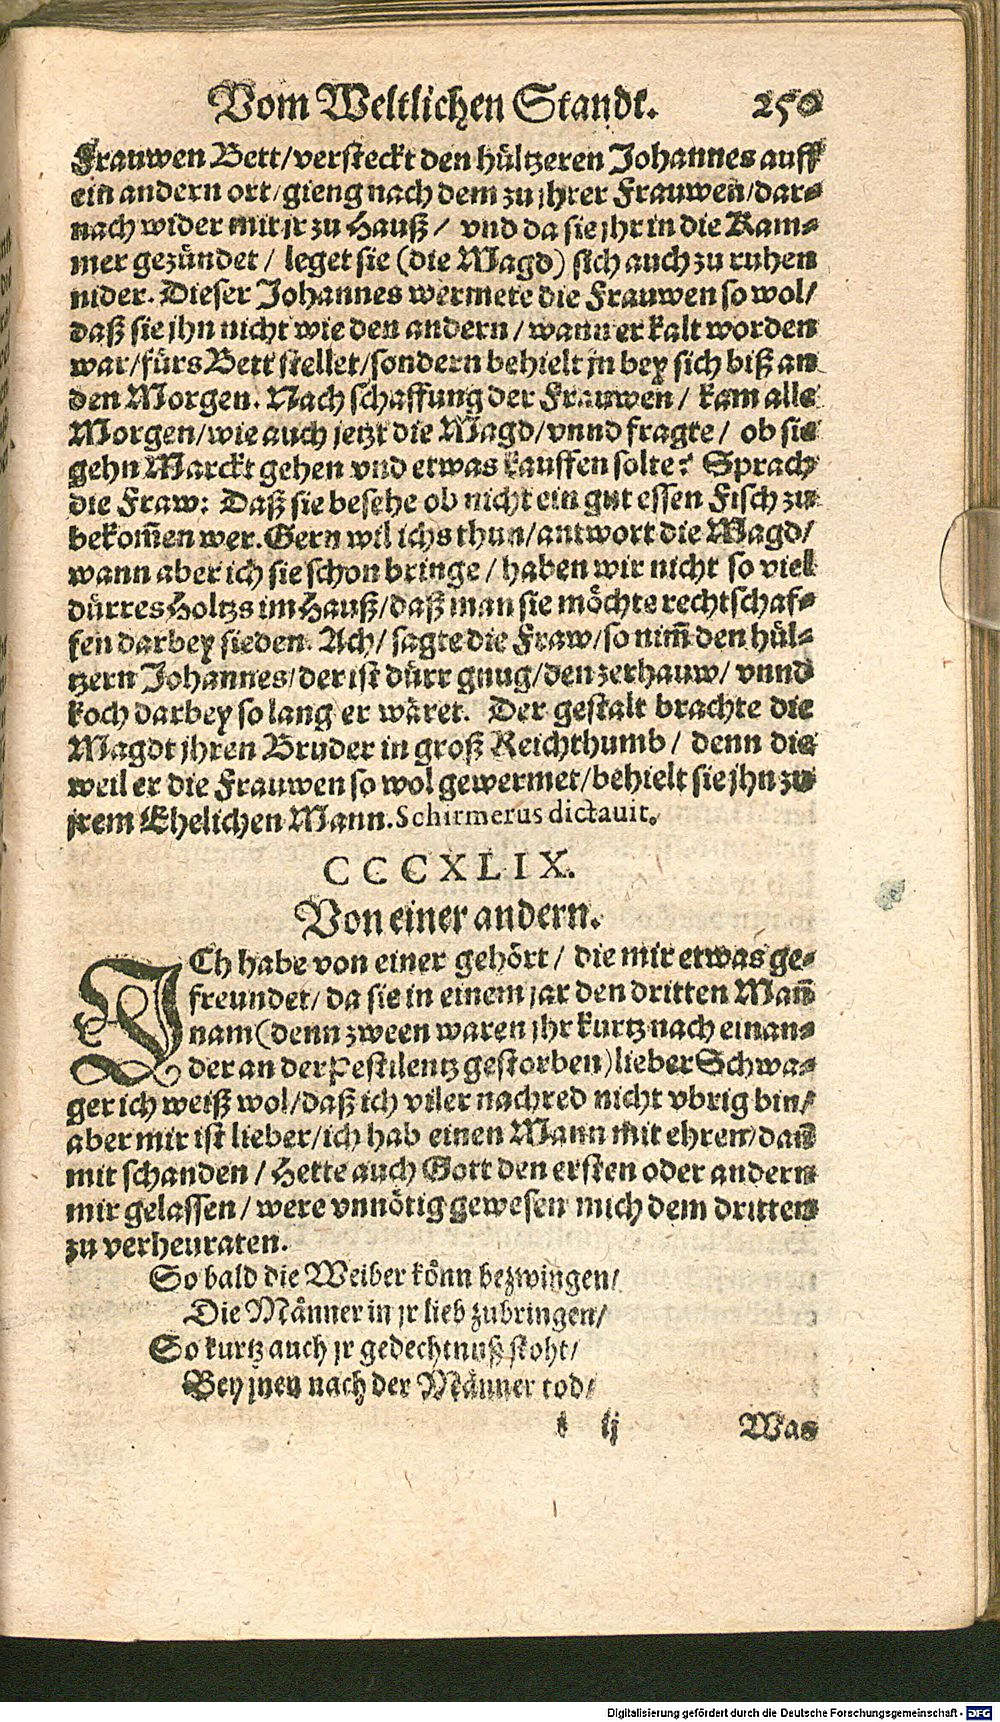 Vom Weltlichen Standt. 250
Frauwen Bett/versteckt den hültzeren Johannes auff
ein andern ort/gieng nach dem zu jhrer Frauwen/dar-
nach wider mit jr zu Hauß/ vnd da sie jhr in die Kam-
mer gezündet/ leget sie (die Magd) sich auch zu ruhen
nider. Dieser Johannes wermete die Frauwen so wol/
daß sie jhn nicht wie den andern/wann er kalt worden
war/fürs Bett stellet/sondern behielt jn bey sich biß an
den Morgen. Nach schaffung der Frauwen/ kam alle
Morgen/wie auch jetzt die Magd/vnnd fragte/ ob sie
gehn Marckt gehen vnd etwas kauffen solte? Sprach
die Fraw: Daß sie besehe ob nicht ein gut essen Fisch zu
bekom̃en wer. Gern wil ichs thun/antwort die Magd/
wann aber ich sie schon bringe/haben wir nicht so viel
dürres Holtzs im Hauß/daß man sie möchte rechtschaf-
fen darbey sieden. Ach/ sagte die Fraw/so nim̃ den hül-
tzern Johannes/der ist dürr gnug/den zerhauw/ vnnd
koch darbey so lang er wäret. Der gestalt brachte die
Magdt jhren Bruder in groß Reichthumb/ denn die
weil er die Frauwen so wol gewermet/behielt sie jhn zu
jrem Ehelichen Mann. Schirmerus dictauit.
CCCXLIX.
Von einer andern.
ICh habe von einer gehört/ die mir etwas ge-
freundet/da sie in einem jar den dritten Mañ
nam (denn zween waren jhr kurtz nach einan-
der an der Pestilentz gestorben) lieber Schwa-
ger ich weiß wol/daß ich viler nachred nicht vbrig bin/
aber mir ist lieber/ich hab einen Mann mit ehren/dañ
mit schanden/Hette auch Gott den ersten oder andern
mir gelassen/were vnnötig gewesen mich dem dritten
zu verheuraten.
So bald die Weiber könn bezwingen/
Die Männer in jr lieb zubringen/
So kurtz auch jr gedechtnuß stoht/
Bey jnen nach der Männer tod/
ij Was
Digitalisierung gefördert durch die Deutsche Forschungsgemeinschaft - DFG